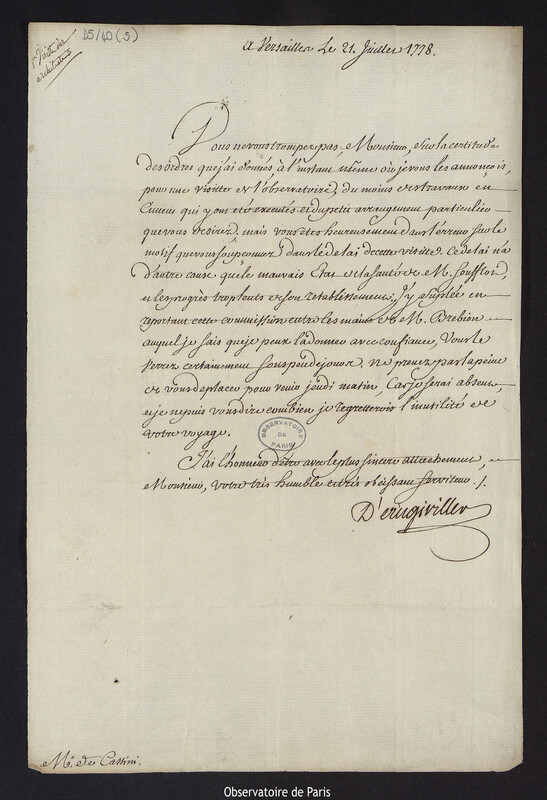 D5/40 (5)
1re Visite des
architectes
A Versailles Le 21. Juillet 1778.
Vous ne vous trompez pas, Monsieur, sur la certitude
des ordres que j'ai donnés, à l'instant même où je vous les annonçois,
pour une visitte de l'observatoire, du moins des travaux en
qui y ont été executés et du petit arrangement particulier
que vous desirez; mais vous êtes heureusement dans l'erreur sur le
motif que vous soupçonnez dans le delai de cette visitte. Ce delai n'a
d'autre cause que le mauvais Etat de la santé de M. Soufflot,
et les progrès trop lents de son retablissement. J'y suplée en
reportant cette commission entre les mains de M. Brebion
auquel je sais que je peux l'adonner avec confiance, Vous le
verrez certainement sous peu de jours. Ne prenez pas la peine
de vous deplacer pour venir jeudi matin, Car je serai absent,
et je ne puis vous dire combien je regretterois l'inutilité de
votre voyage.
OBSERVATOIRE
DE
PARIS
J'ai l'honneur d'être avec le plus sincere attachement,
Monsieur, votre très humble et très obeissant serviteur ./.
D'angiviller
Mr. de Cassini.
Observatoire de Paris